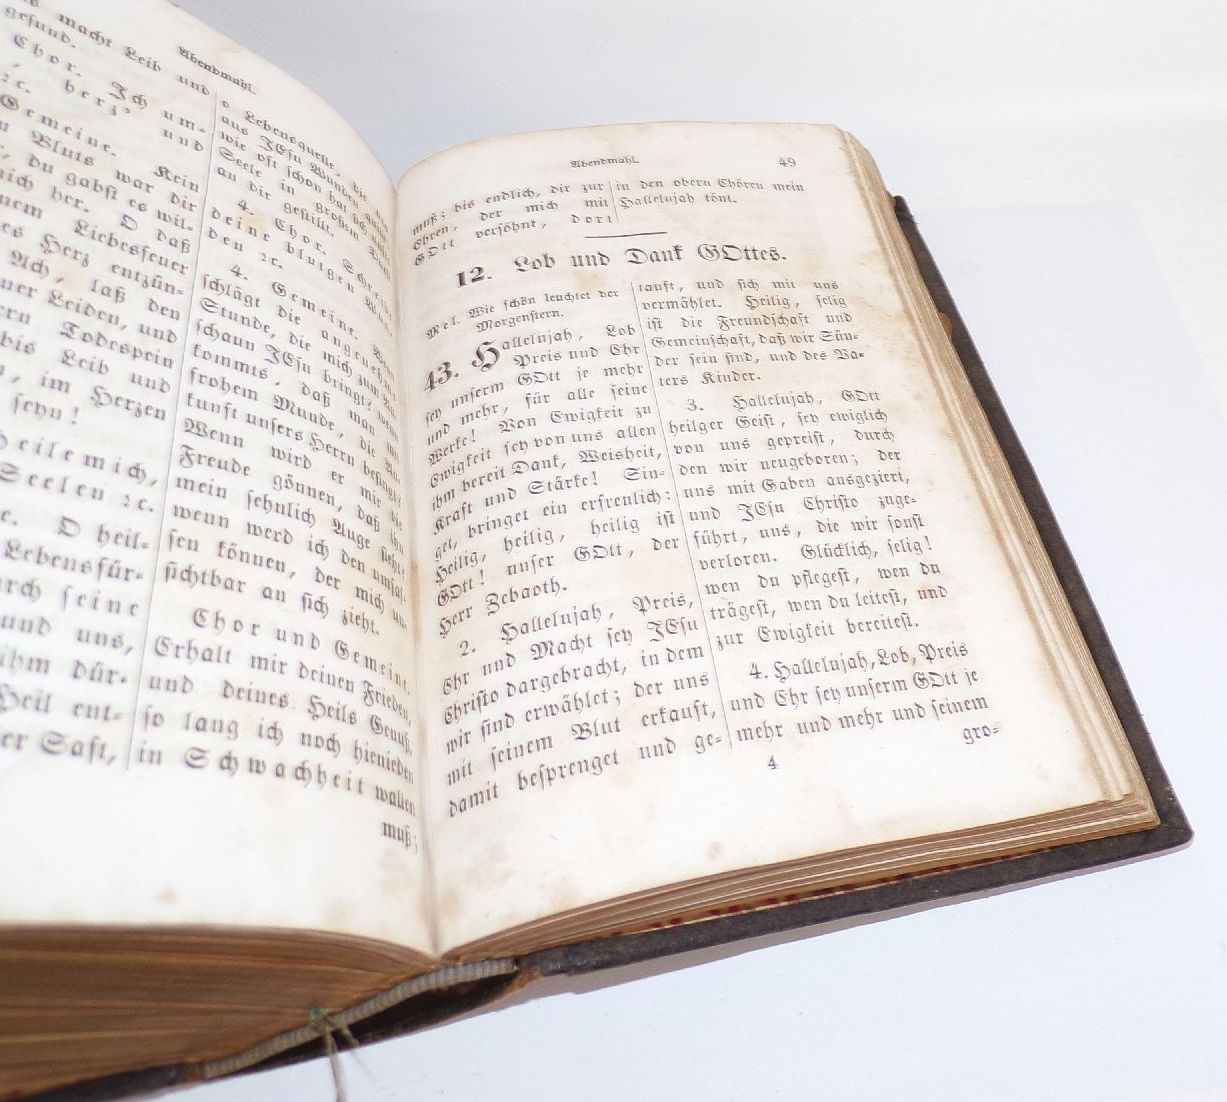 s macht Leib und
gesund.
Chor. Ich um-
herz' und
Gemeine. Kein
Bluts war dir
, du gabst es wil-
mich her. O daß
Liebesfeuer
es Herz entzün-
Ach, laß den
uer Leiden, und
ern Todespein
bis Leib und
, im Herzen
seyn!
Heile mich,
Seelen ꝛc.
e. O heil-
Lebensfür-
urch seine
und uns,
ihm dür-
Heil ent-
er Saft,
Abendmahl.
o Lebensquelle,
aus JEsu Wunden
wie oft schon hat sich
Seele in großem
an dir gestillt.
4. Chor.
deine blutgen
den ꝛc.
4. Gemeine.
schlägt die angenehme
Stunde, die mich zum
schaun JEsu bringt?
kommts, daß man
frohem Munde, die
kunft unsers Herrn besingt?
Wenn wird er mir die
Freude gönnen, daß ihn
mein sehnlich Auge sieht?
wenn werd ich den umfas-
sen können, der mich un-
sichtbar an sich zieht.
Chor und Gemeine.
Erhalt mir deinen Frieden,
und deines Heils Genuß,
so lang ich noch hienieden
in Schwachheit wallen
muß;
Abendmahl. 49
muß; bis endlich, dir zur
Ehren, der mich mit
GOtt versöhnt, dort
in den obern Chören mein
Hallelujah tönt.
12. Lob und Dank GOttes.
Mel. Wie schön leuchtet der
Morgenstern.
43. Hallelujah, Lob
Preis und Ehr
sey unserm GOtt je mehr
und mehr, für alle seine
Werke! Von Ewigkeit zu
Ewigkeit sey von uns allen
ihm bereit Dank, Weisheit,
Kraft und Stärke! Sin-
get, bringet ein erfreulich:
Heilig, heilig, heilig ist
GOtt! unser GOtt, der
Herr Zebaoth.
2. Hallelujah, Preis,
Ehr und Macht sey JEsu
Christo dargebracht, in dem
wir sind erwählet; der uns
mit seinem Blut erkauft,
damit besprenget und ge-
tauft, und sich mit uns
vermählet. Heilig, selig
ist die Freundschaft und
Gemeinschaft, daß wir Sün-
der sein sind, und des Va-
ters Kinder.
3. Hallelujah, GOtt
heilger Geist, sey ewiglich
von uns gepreist, durch
den wir neugeboren; der
uns mit Gaben ausgeziert,
und JEsu Christo zuge-
führt, uns, die wir sonst
verloren. Glücklich, selig!
wen du pflegest, wen du
trägest, wen du leitest, und
zur Ewigkeit bereitest.
4. Hallelujah, Lob, Preis
und Ehr sey unserm GOtt je
mehr und mehr und seinem
4 gro-